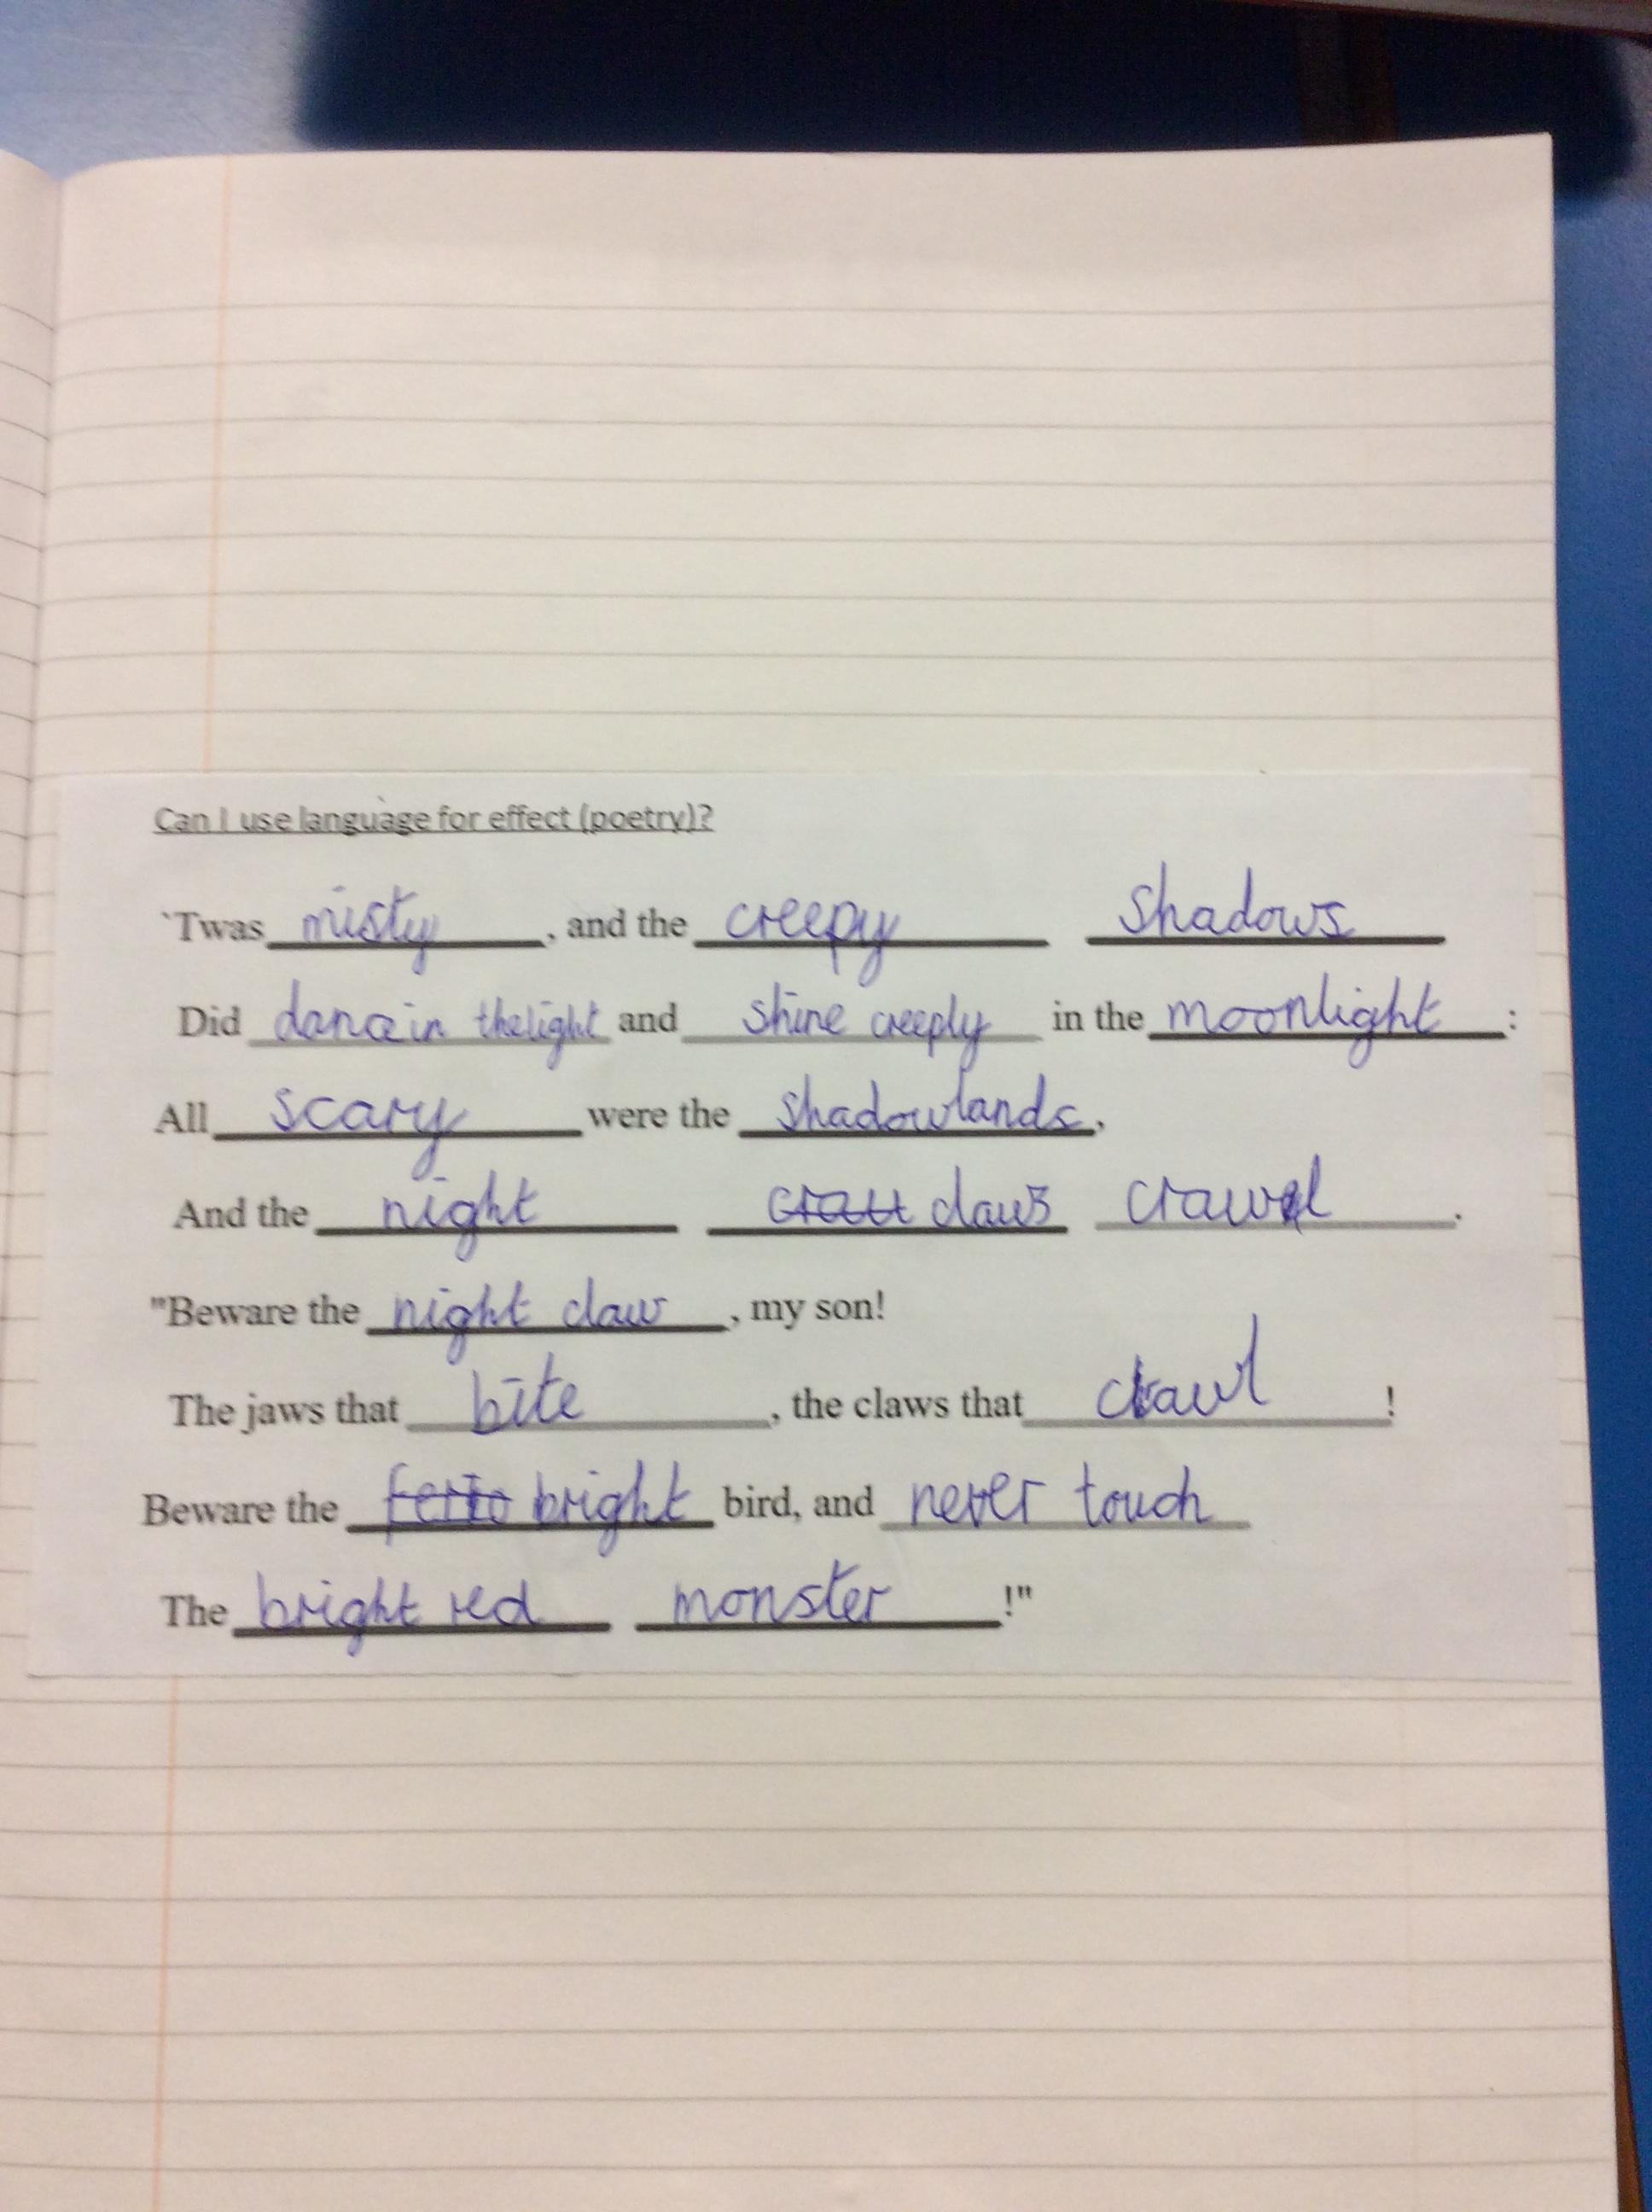 Can I use language for effect (poetry)?
`Twas misty, and the creepy shadows
Did dance in the light and shine creeply in the moonlight:
All scary were the shadowlands,
And the night claws crawl.
"Beware the night claw, my son!
The jaws that bite, the claws that crawl!
Beware the bright bird, and never touch
The bright red monster!"